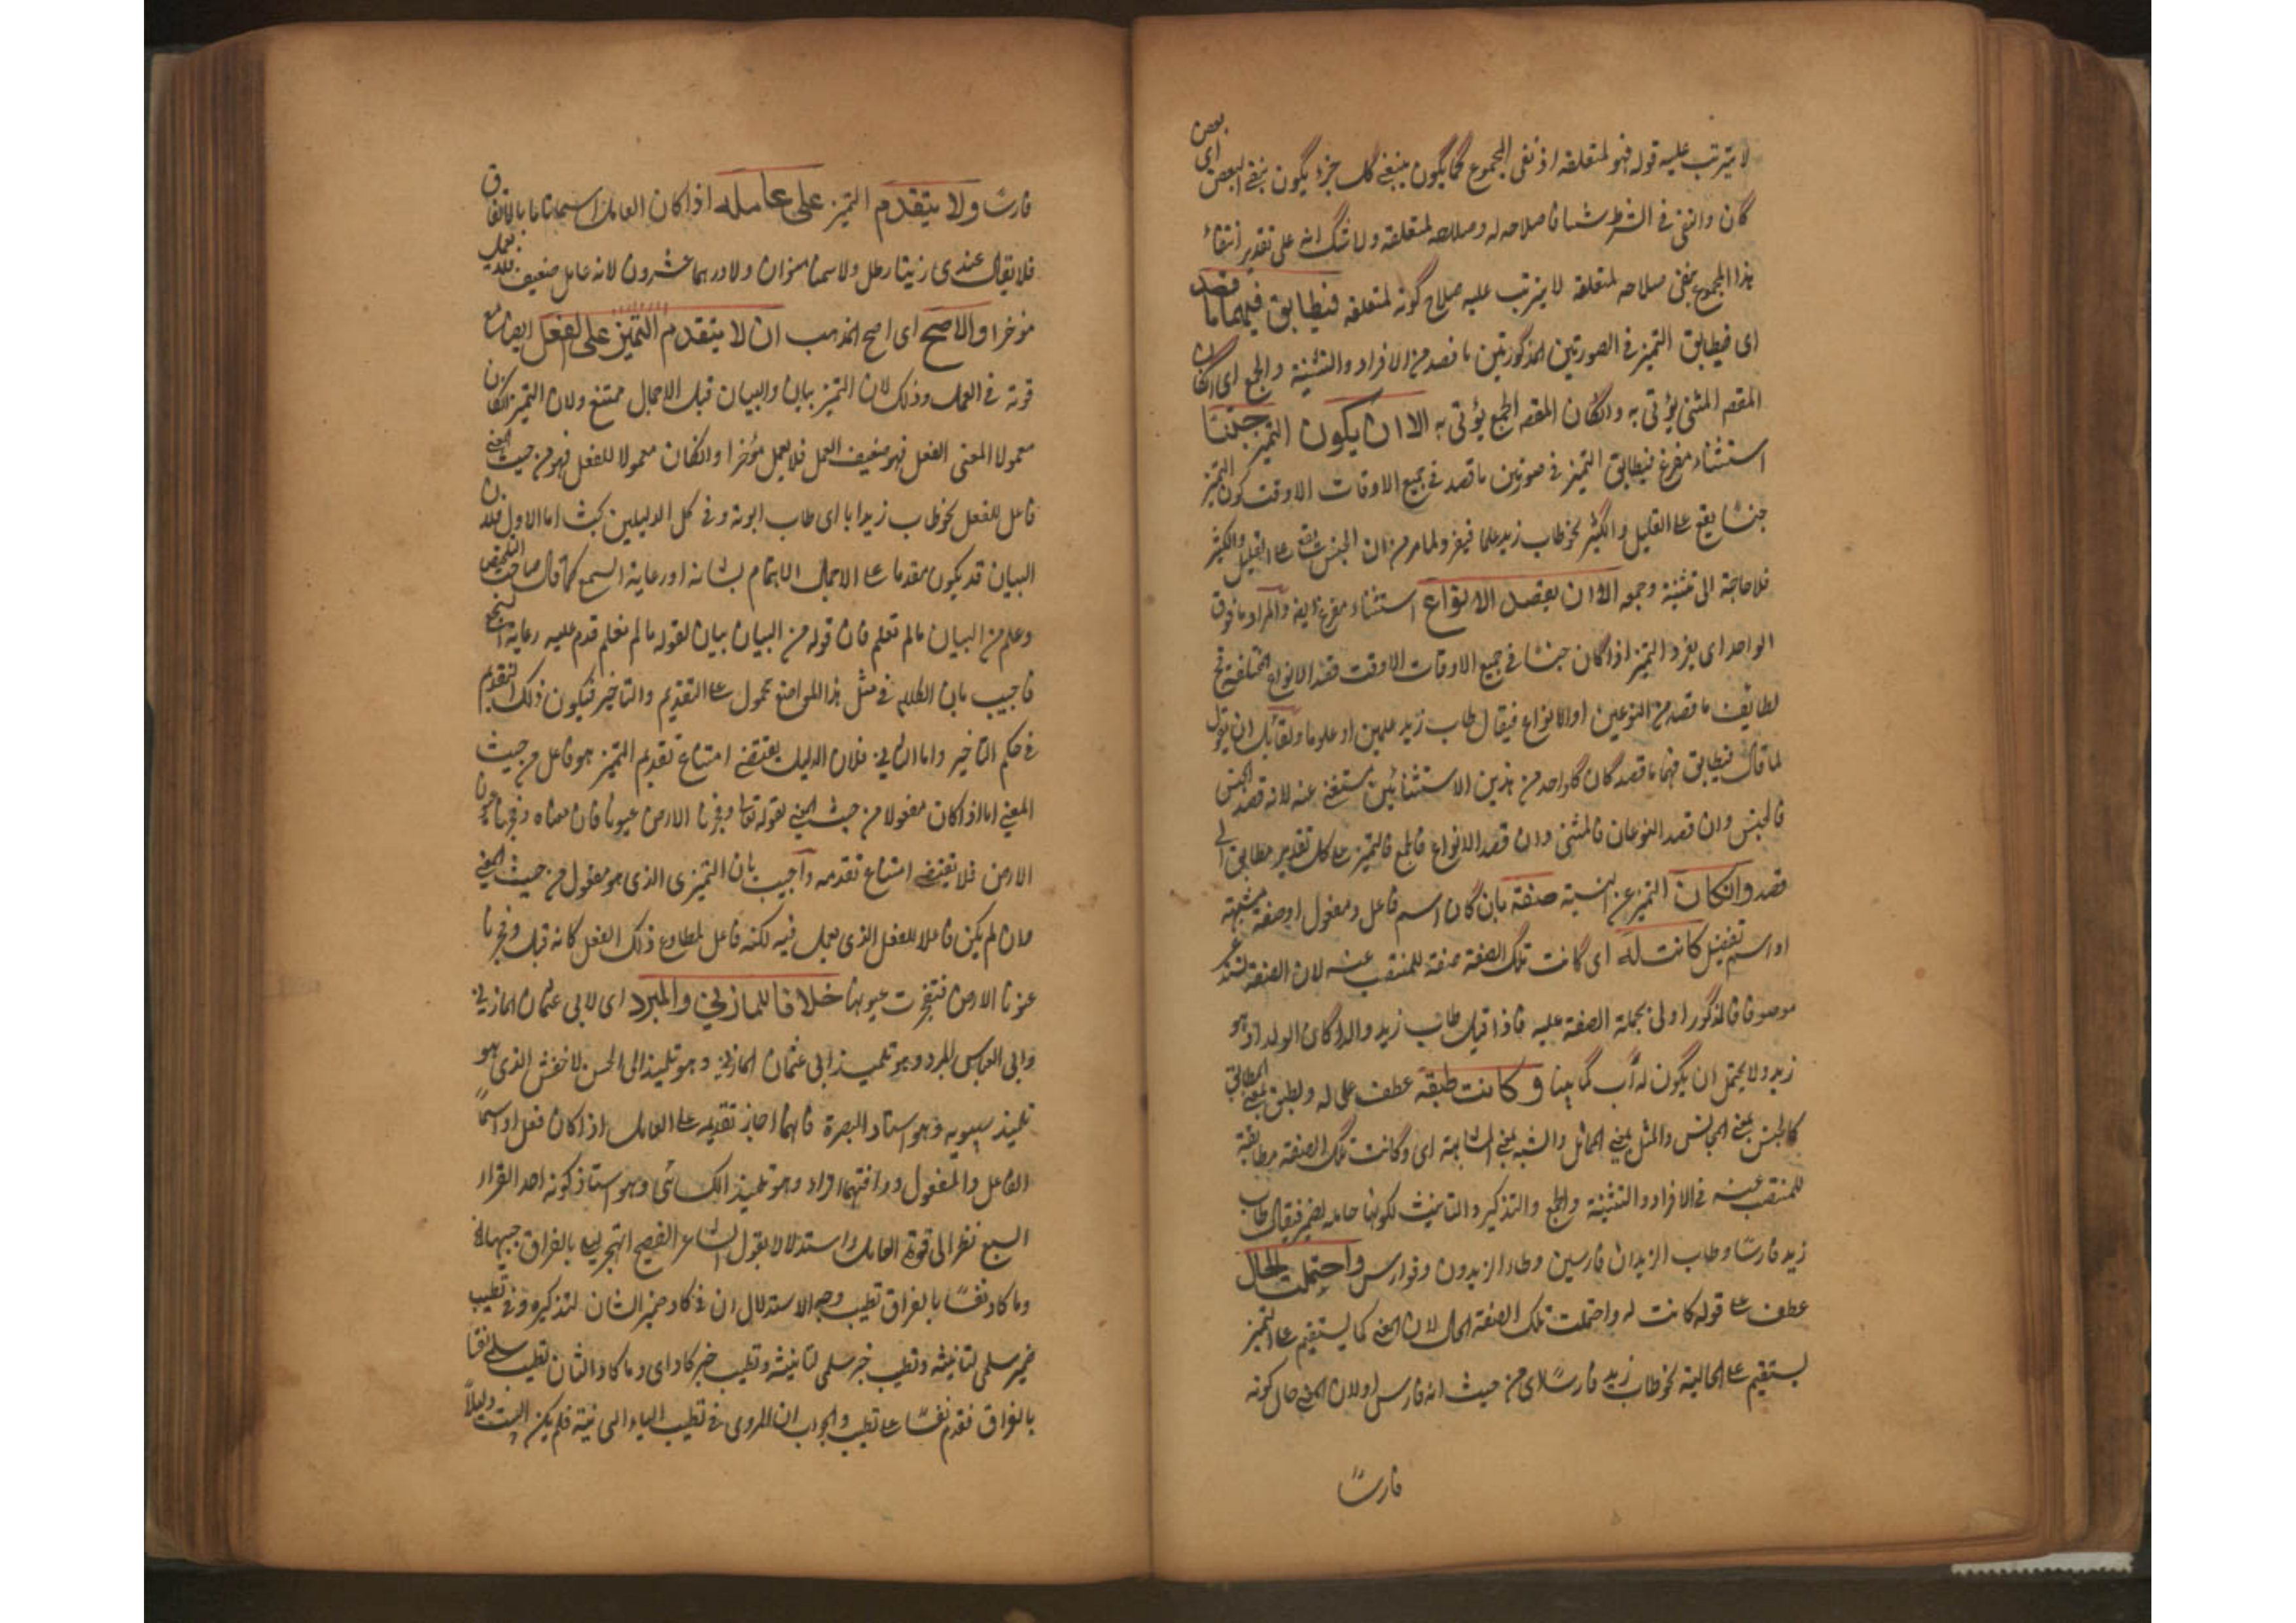 لا يترتب عليه قوله فهو لمتعلقه اذ نفى المجموع كما يكون بنفى كل جزء يكون بنفى البعض اى بعض
كان والنفى فى الشرط شيئا فاصلاحه له وصلاحه لمتعلقه ولا شك انه على تقدير انتفاء
هذا المجموع بنفى صلاحه لمتعلقه لا يترتب عليه صلاح كونه لمتعلقه فيطابق فيهما ما قصد
اى فيطابق التميز فى الصورتين المذكورتين ما قصد من الافراد والتثنية والجمع اى انكان
المقصد المثنى يؤتى به وانكان المقصد الجمع يؤتى به الا ان يكون التميز جنسا
استثناء مفرغ فيطابق التميز فى صورتين ما قصد فى جميع الاوقات الا وقت كون التميز
جنسا يقع على القليل والكثير نحو طاب زيد علما فيفرد لما مر من ان الجنس يقع على القليل والكثير
فلا حاجة الى تثنية وجمعه الا ان يقصد الانواع استثناء مفرغ ايضا والمراد ما فوق
الواحد اى يفرد التميز اذا كان جنسا فى جميع الاوقات الا وقت قصد الانواع المختلفة فح
لطابق ما قصد من النوعين او الانواع فيقال طاب زيد علمين او علوما ولقائل ان يقول
لما قال فيطابق فيهما ما قصد كان كل واحد من هذين الاستثنائين مستغنى عنه لانه قصد الجنس
فالجنس وان قصد النوعان فالمثنى وان قصد الانواع فالجمع فالتميز على كل تقدير مطابق لما
قصد وانكان التميز عن النسبة صفة بان كان اسم فاعل ومفعول او صفة مشبهة
او اسم تفضيل كانت له اى كانت تلك الصفة صفة للمنتصب عنه لان الصفة تستدعى
موصوفا فالمذكور اولى بجملة الصفة عليه فاذا قيل طاب زيد والدا كان الوالد هو
زيد ولا يحتمل ان يكون له أب كما بينا و كانت طبقه عطف على له والطبق بمعنى المطابق
كالجنس بمعنى المجانس والمثل بمعنى المماثل والشبه بمعنى المشابهة اى وكانت تلك الصفة مطابقة
للمنتصب عنه فى الافراد والتثنية والجمع والتذكير والتانيث لكونها حاملة لضميره فيقال طاب
زيد فارسًا وطاب الزيدان فارسين وطاب الزيدون وفوارس واحتملت الحال
عطف على قوله كانت له واحتملت تلك الصفة الحال لان المعنى كما يستقيم على التميز
يستقيم على الحالية نحو طاب زيد فارسًا اى من حيث انه فارس اولان المعنى حال كونه
فارسًا
فارسًا ولا يتقدم التميز على عامله اذا كان العامل اسما تاما بالاتفاق
فلا يقال عندى زيتا رطل ولا سمنا منوان ولا درهما عشرون لانه عامل ضعيف فلا يعمل
مؤخرا والاصح اى اصح المذهب ان لا يتقدم التميز على الفعل ايضا مع
قوته فى العمل وذلك لان التميز بيان والبيان قبل الاجمال ممتنع ولان التميز انكان
معمولا المعنى الفعل فهو ضعيف العمل فلا يعمل مؤخرا وانكان معمولا للفعل فهو من حيث المعنى
فاعل للفعل نحو طاب زيد ابا اى طاب ابوته وفى كل الدليلين بحث اما الاول فلان
البيان قد يكون مقدما على الاجمال للاهتمام بشانه او رعاية السجع كما قال صاحب التلخيص
وعلم من البيان مالم نعلم فان قوله من البيان بيان لقوله مالم نعلم قدم عليه رعاية للسجع
فاجيب بان الكلام فى مثل هذا المواضع محمول على التقديم والتاخير فيكون ذلك التقديم
فى حكم التاخير واما الثانى فلان الدليل يقتضى امتناع تقديم التميز هو فاعل من حيث
المعنى اما اذا كان مفعولا من حيث المعنى كقوله تعالى وفجرنا الارض عيونا فان معناه وفجرنا عيون
الارض فلا يقتضى امتناع تقدمه واجيب بان التميز الذى هو مفعول من حيث المعنى
وان لم يكن فاعلا للفعل الذى يعمل فيه لكنه فاعل لمطاوع ذلك الفعل كانه قيل وفجرنا
عيونا الارض فتفجرت عيونها خلافا للمازنى والمبرد اى لابى عثمان المازنى
وابى العباس المبرد وهو تلميذ ابى عثمان المازنى وهو تلميذ ابى الحسن الاخفش الذى هو
تلميذ سيبويه وهو استاد البصرة فانهما اجاز تقديمه على العامل اذا كان فعلا او اسمًا
الفاعل والمفعول ووافقهما الفراء وهو تلميذ الكسائى وهو استاذ كونه احد القراء
السبع نظرا الى قوة العامل واستدلالا بقول الشاعر الفصيح اتهجر ليلى بالفراق حبيبها
وما كاد نفسًا بالفراق تطيب وجه الاستدلال ان فى كاد ضمير الشان لتذكيره وفى تطيب
ضمير سلمى لتانيثه وتطيب خبر سلمى لتانيثه وتطيب خبر كاد اى وما كاد الشان تطيب سلمى نفسا
بالفراق فقدم نفسًا على تطيب والجواب ان المروى فى تطيب الياء التحتانية فلم يكن البيت دليلاً